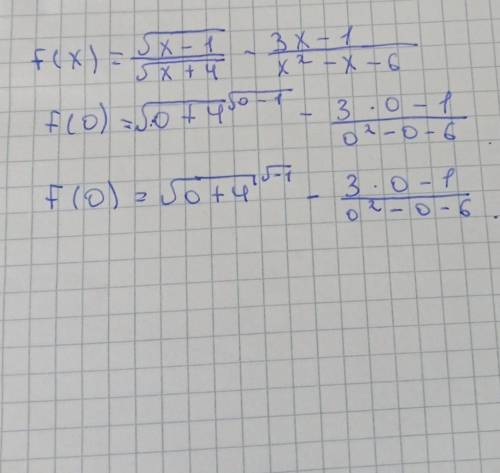 f(x) = √(x-1)/√(x+4) - (3x-1)/(x²-x-6)
f(0) = √0+4^√0-1 - (3·0-1)/(0²-0-6).
f(0) = √0+4^√-1 - (3·0-1)/(0²-0-6).